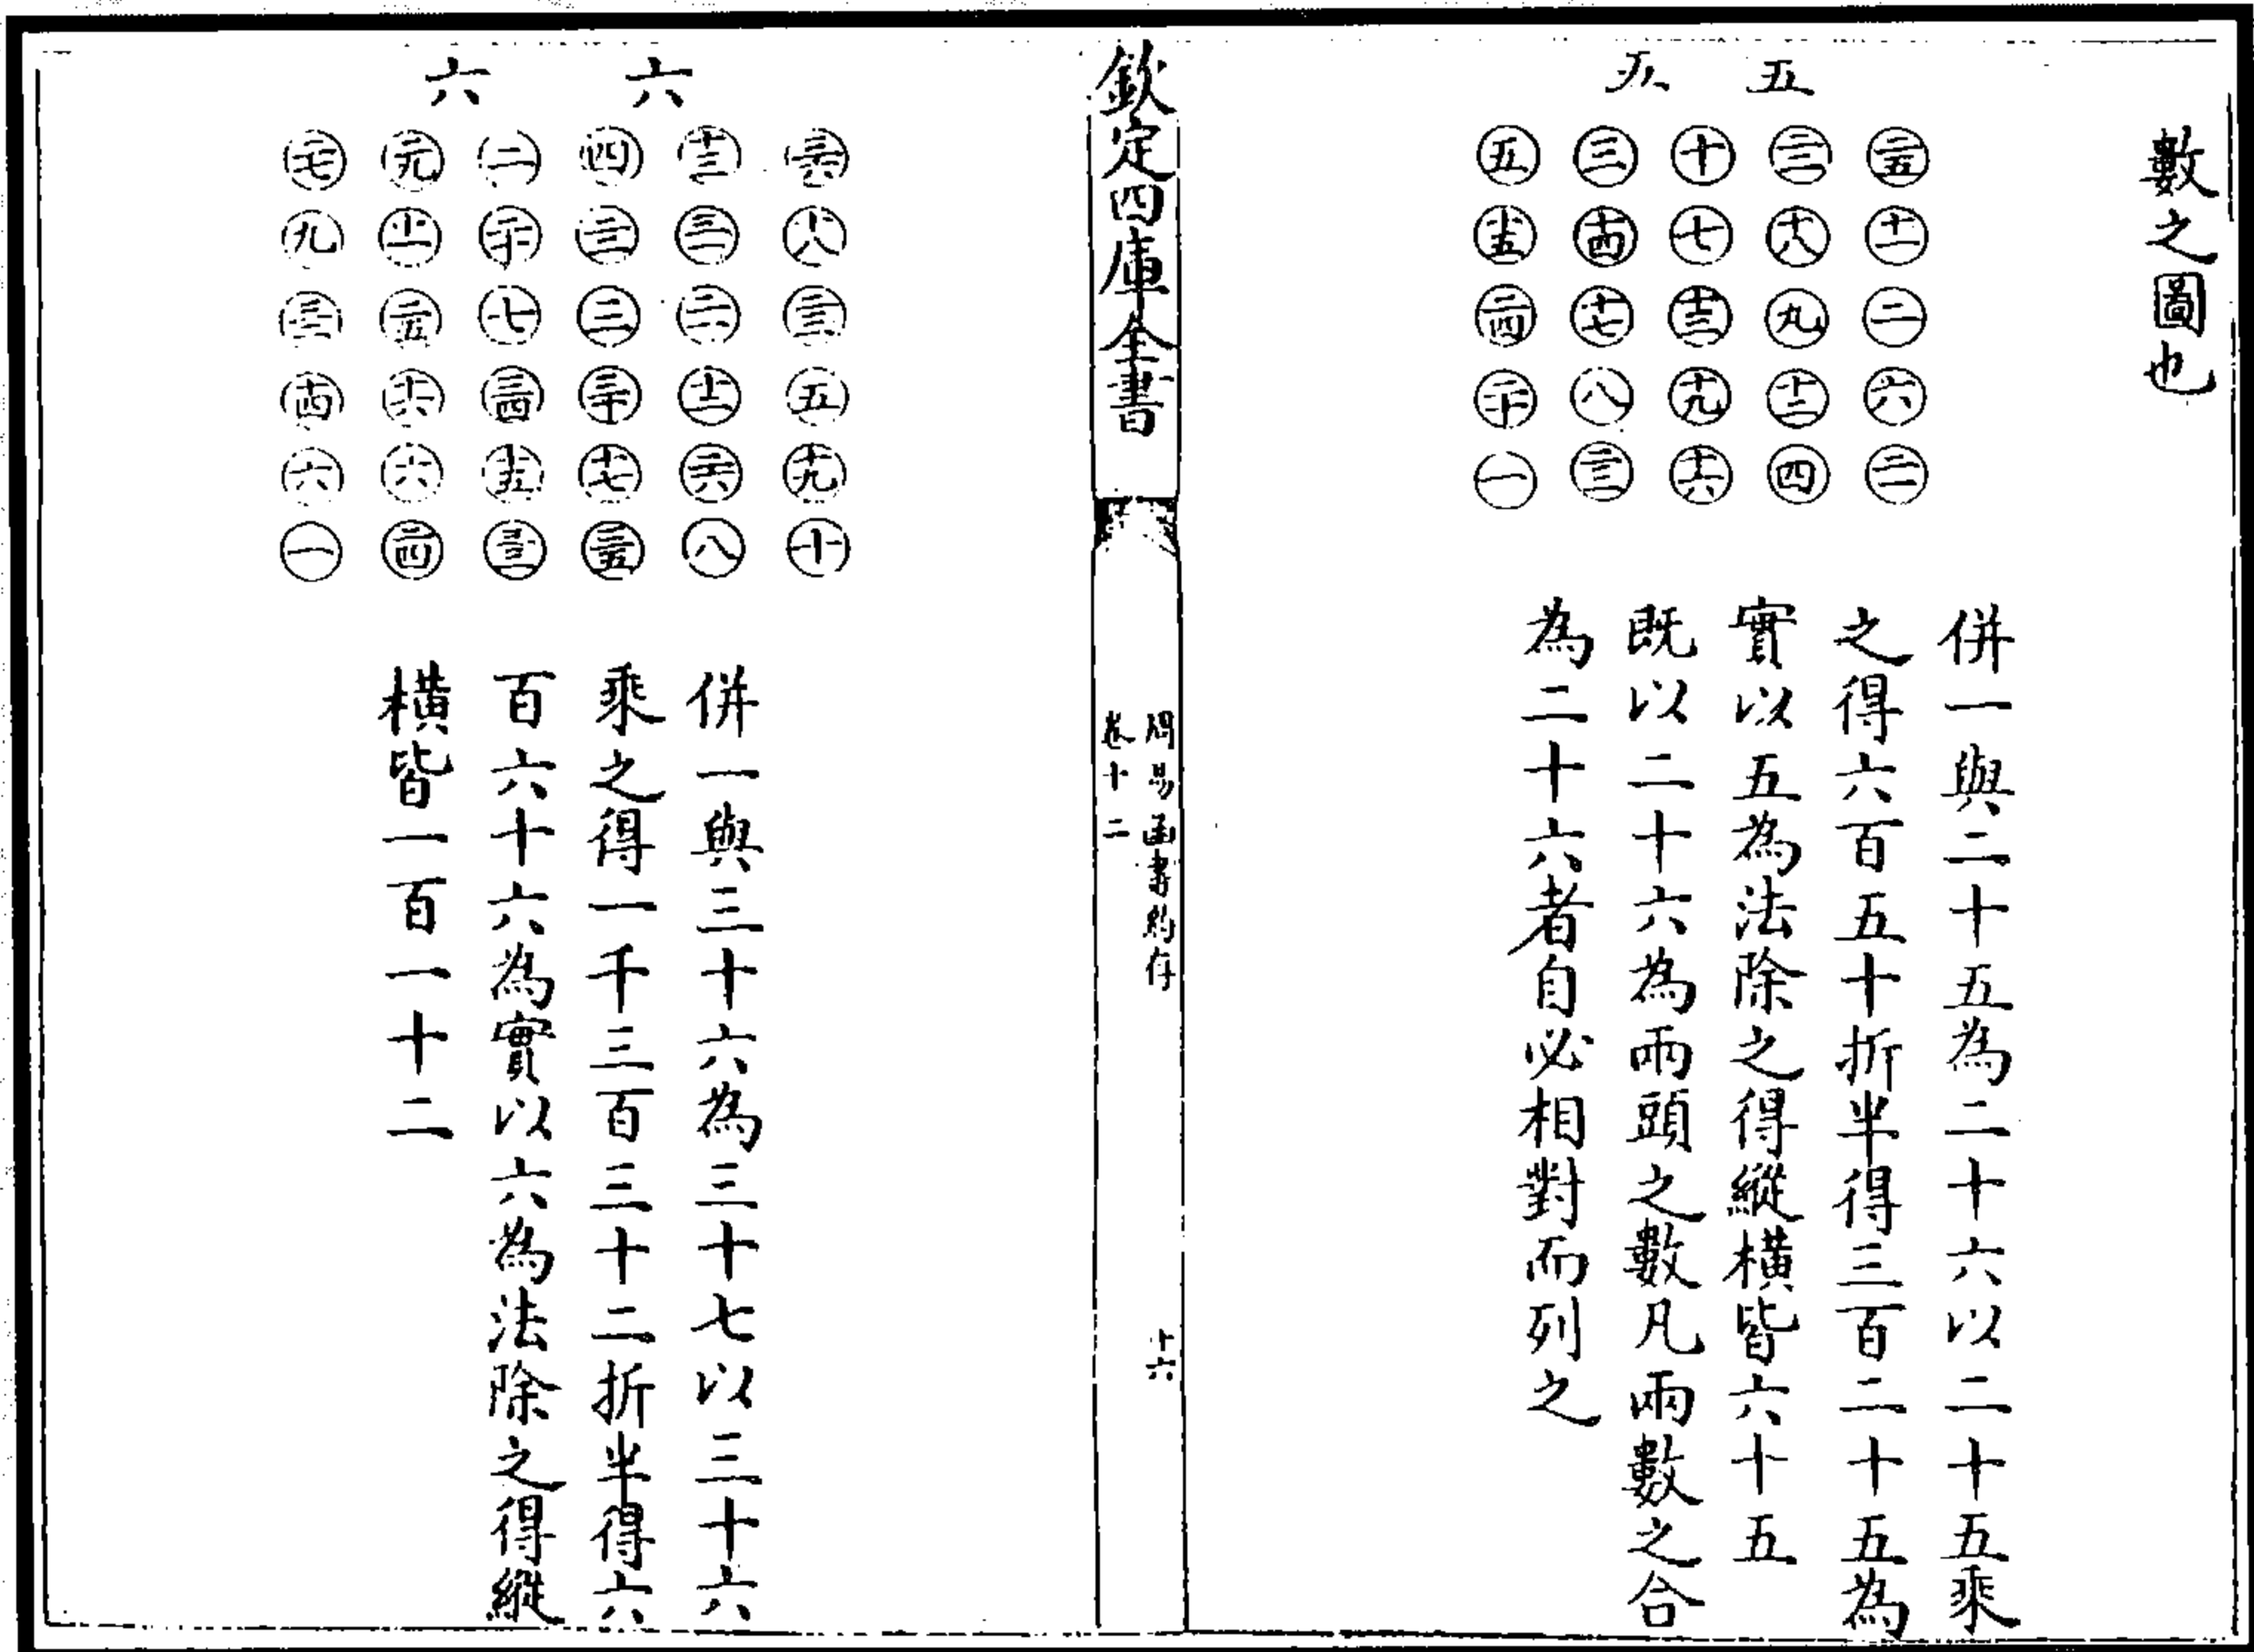 數之圖也
五五
二十五 十一 二 六 二十一
二十二 十八 九 十二 四
十 七 十三 十九 十六
三 十四 十七 八 二十三
五 十五 二十四 二十 一
併一與二十五為二十六以二十五乘
之得六百五十折半得三百二十五為
實以五為法除之得縱橫皆六十五
既以二十六為兩頭之數凡兩數之合
為二十六者自必相對而列之
欽定四庫全書
周易函書約存
卷十二
十六
六六
三十六 十八 二十三 五 十九 十
十三 三十一 二十一 十二 二十六 八
四 二十二 三 三十 十七 三十五
二 二十 七 三十四 十五 三十三
二十九 十一 二十五 十六 六 二十四
二十七 九 三十二 十四 六 一
併一與三十六為三十七以三十六
乘之得一千三百三十二折半得六
百六十六為實以六為法除之得縱
橫皆一百一十二